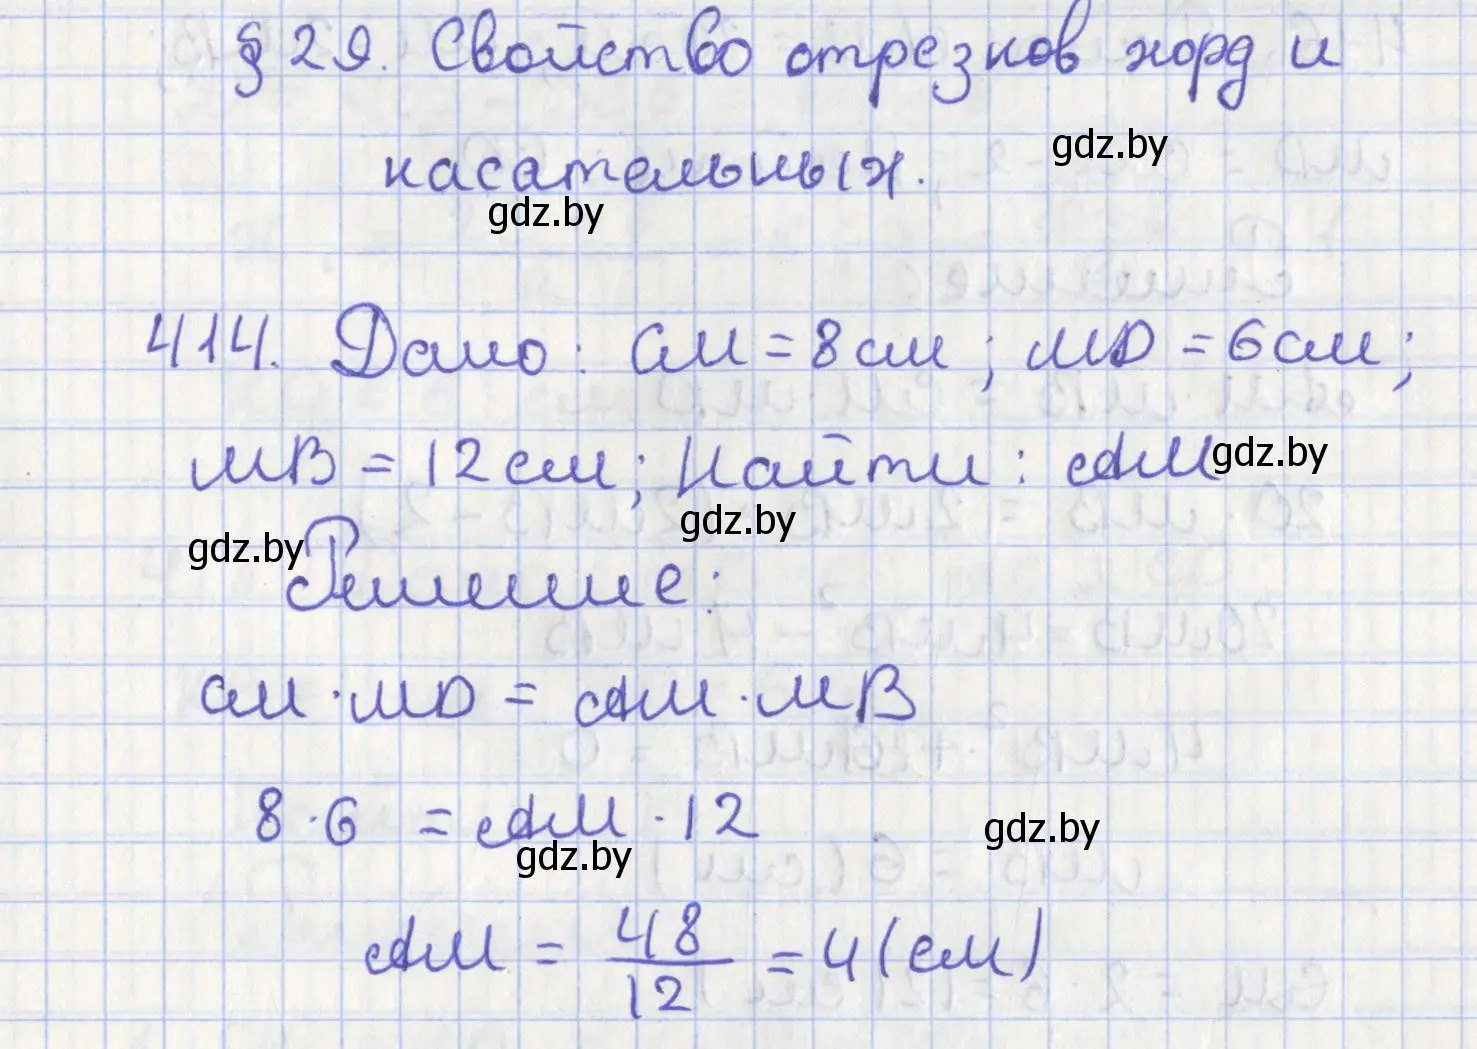 § 29. Свойство отрезков хорд и
касательных.
gdz.by
gdz.by
414. Дано: CM = 8 см; MD = 6 см;
MB = 12 см; Найти: AM
gdz.by
gdz.by
gdz.by
Решение:
CM · MD = AM · MB
8 · 6 = AM · 12
gdz.by
gdz.by
AM = 48/12 = 4 (см)